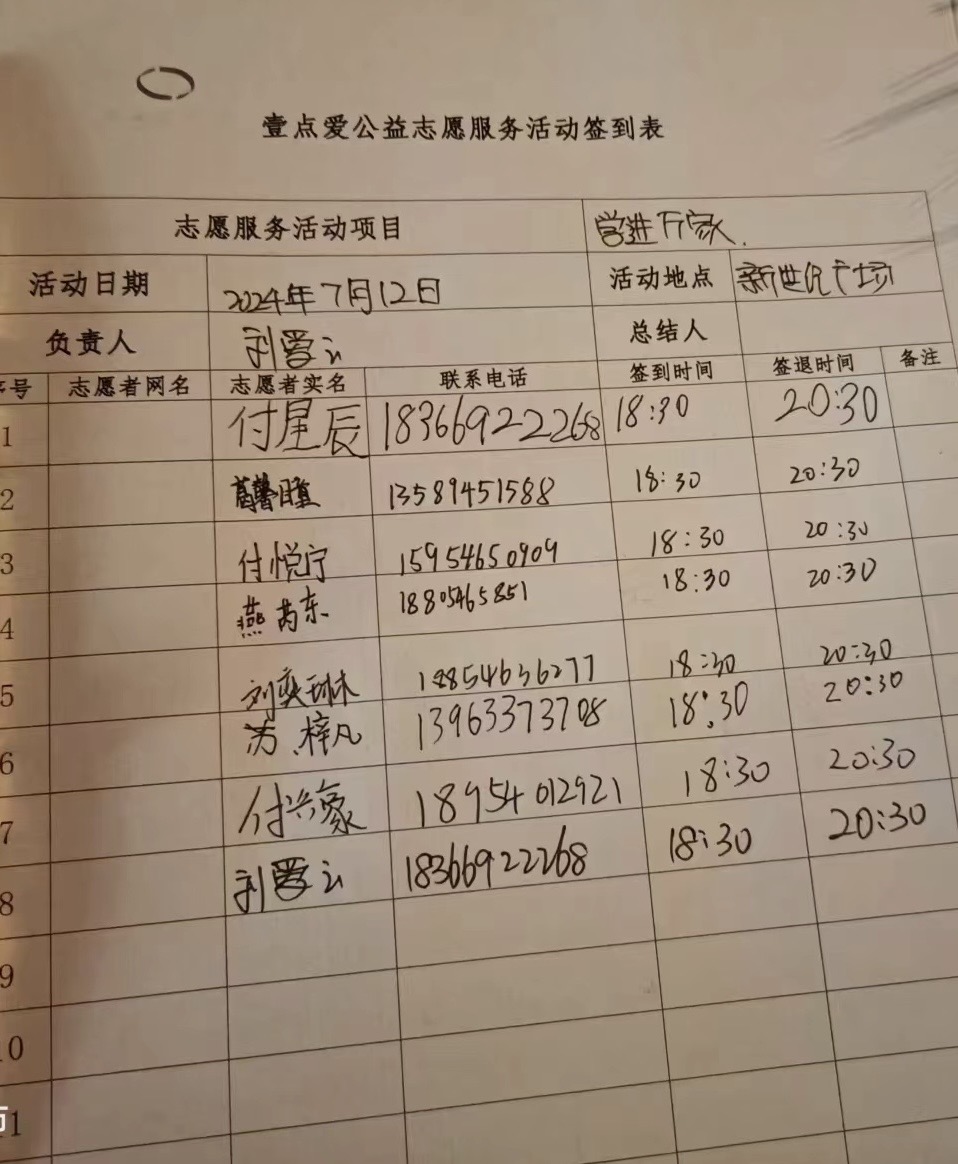 壹点爱公益志愿服务活动签到表
志愿服务活动项目 营进万家.
活动日期 2024年7月12日 活动地点 新世纪广场
负责人 刘爱云 总结人
序号 志愿者网名 志愿者实名 联系电话 签到时间 签退时间 备注
1 付星辰 18366922268 18:30 20:30
2 13589451588 18:30 20:30
3 付悦宁 15954650909 18:30 20:30
4 燕芮东 18805465851 18:30 20:30
5 刘奕琳 18854636277 18:30 20:30
6 苏梓凡 13963373708 18:30 20:30
7 付兴豪 18954012921 18:30 20:30
8 刘爱云 18366922268 18:30 20:30
9
10
11